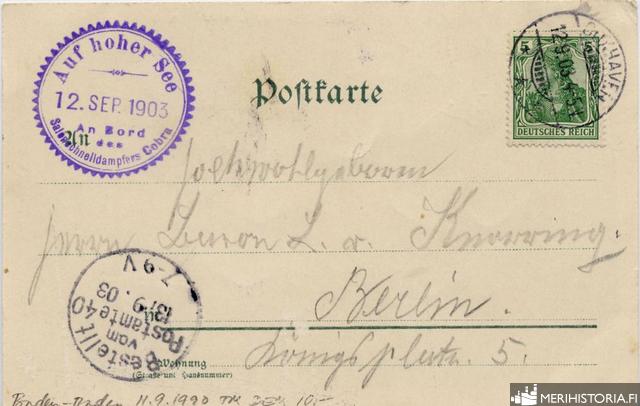 Auf hoher See
12. SEP. 1903
An Bord
des
Salonschnelldampfers Cobra
Postkarte
CUXHAVEN
12.9.03
5
DEUTSCHES REICH
An
Hochwohlgeboren
Herrn Baron L. v. Knorring.
Berlin.
in
Wohnung
(Straße und Hausnummer)
Königsplatz. 5.
Bestellt
vom
Postamte 40
13/9. 03
7-9 V
Baden-Baden 11.9.1990 10,-
MERIHISTORIA.FI